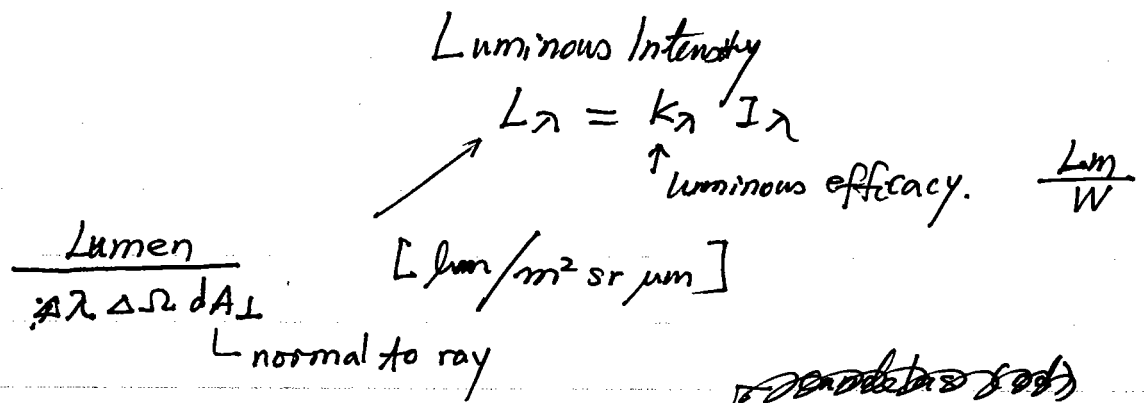 Luminous Intensity
Lλ = kλ Iλ
↑ luminous efficacy. Lm/W
Lumen / Δλ ΔΩ dA⊥
[lum/m² sr μm]
normal to ray